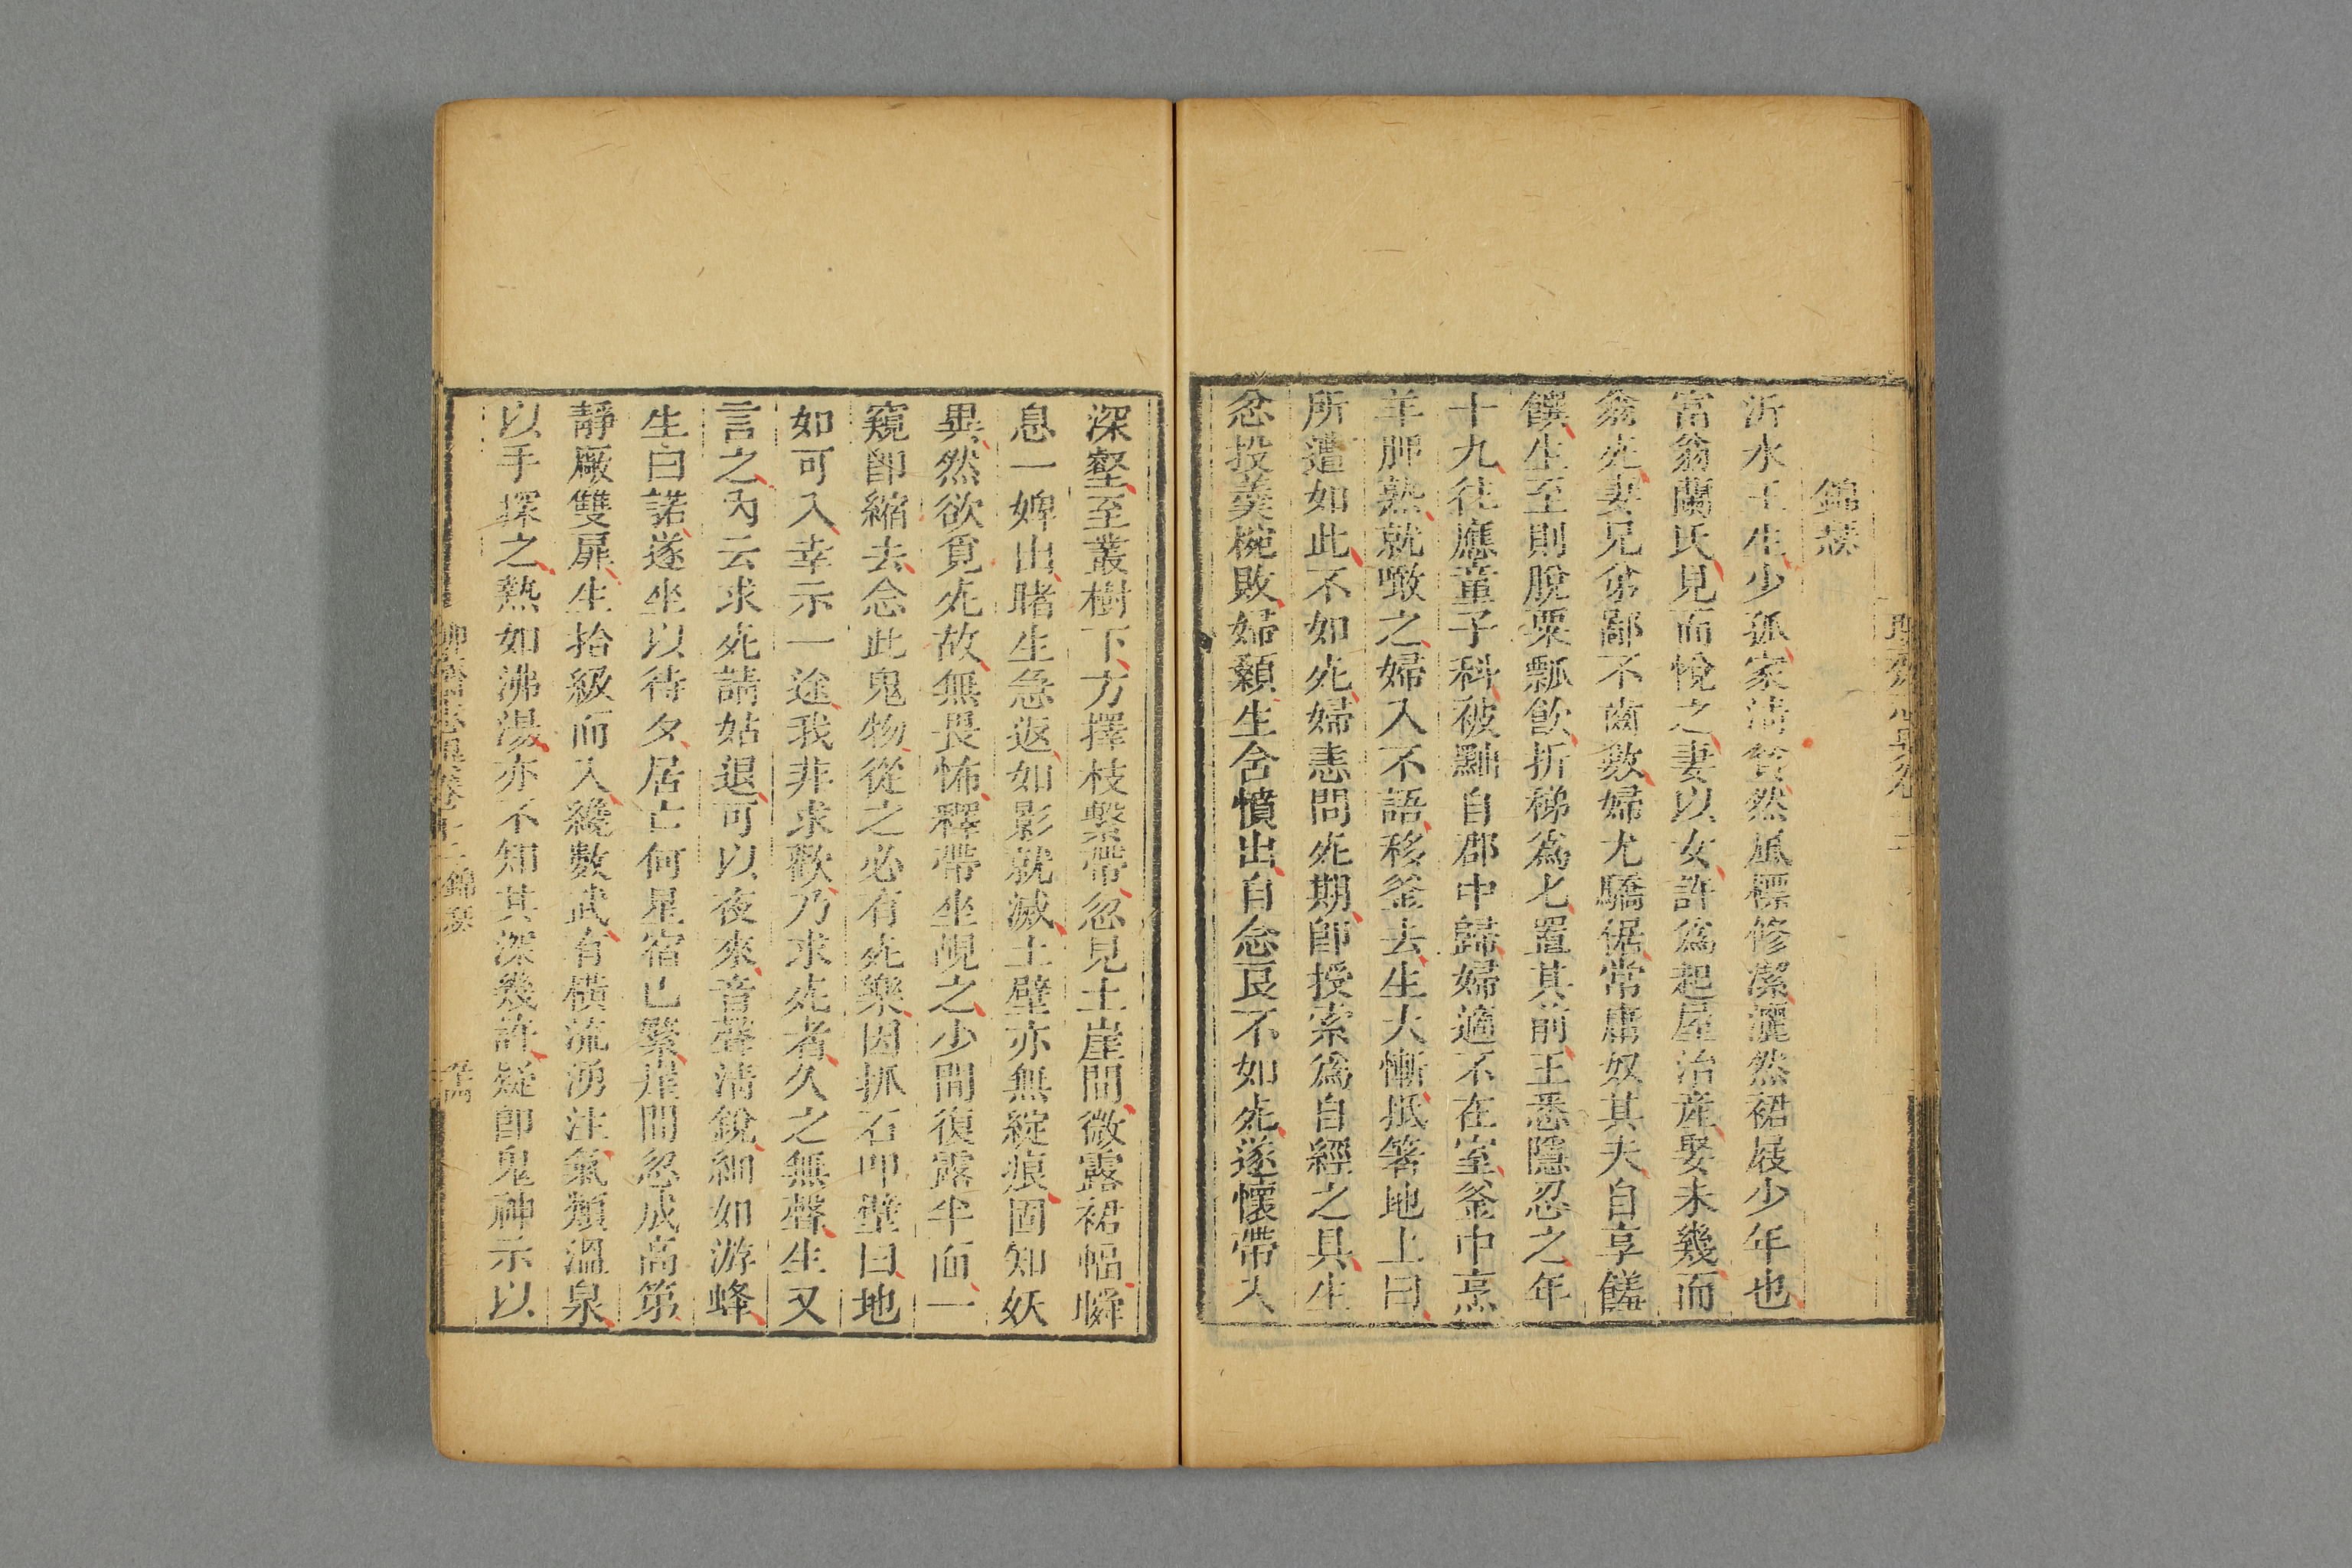 錦瑟
沂水王生少孤家淸貧然風標修潔灑然裙屐少年也
富翁蘭氏見而悅之妻以女許爲起屋治產娶未幾而
翁死妻兄弟鄙不齒數婦尤驕倨常庸奴其夫自享饈
饌生至則脫粟瓢飮折稊爲匕置其前王悉隱忍之年
十九徃應童子科被黜自郡中歸婦適不在室釜中烹
羊胛熟就噉之婦入不語移釜去生大慚抵箸地上曰
所遭如此不如死婦恚問死期卽授索爲自經之具生
忿投羹椀敗婦顙生含憤出自念良不如死遂懷帶入
深壑至叢樹下方擇枝繫帶忽見土崖間微露裙幅瞬
息一婢出睹生急返如影就滅土壁亦無綻痕固知妖
異然欲覓死故無畏怖釋帶坐覘之少間復露半面一
窺卽縮去念此鬼物從之必有死樂因抓石叩壁曰地
如可入幸示一途我非求歡乃求死者久之無聲生又
言之內云求死請姑退可以夜來音聲淸銳細如游蜂
生曰諾遂坐以待夕居亡何星宿已繁崖間忽成高第
靜厰雙扉生拾級而入纔數武有橫流湧注氣類溫泉
以手探之熱如沸湯亦不知其深幾許疑卽鬼神示以
聊齋志異卷十二 錦瑟